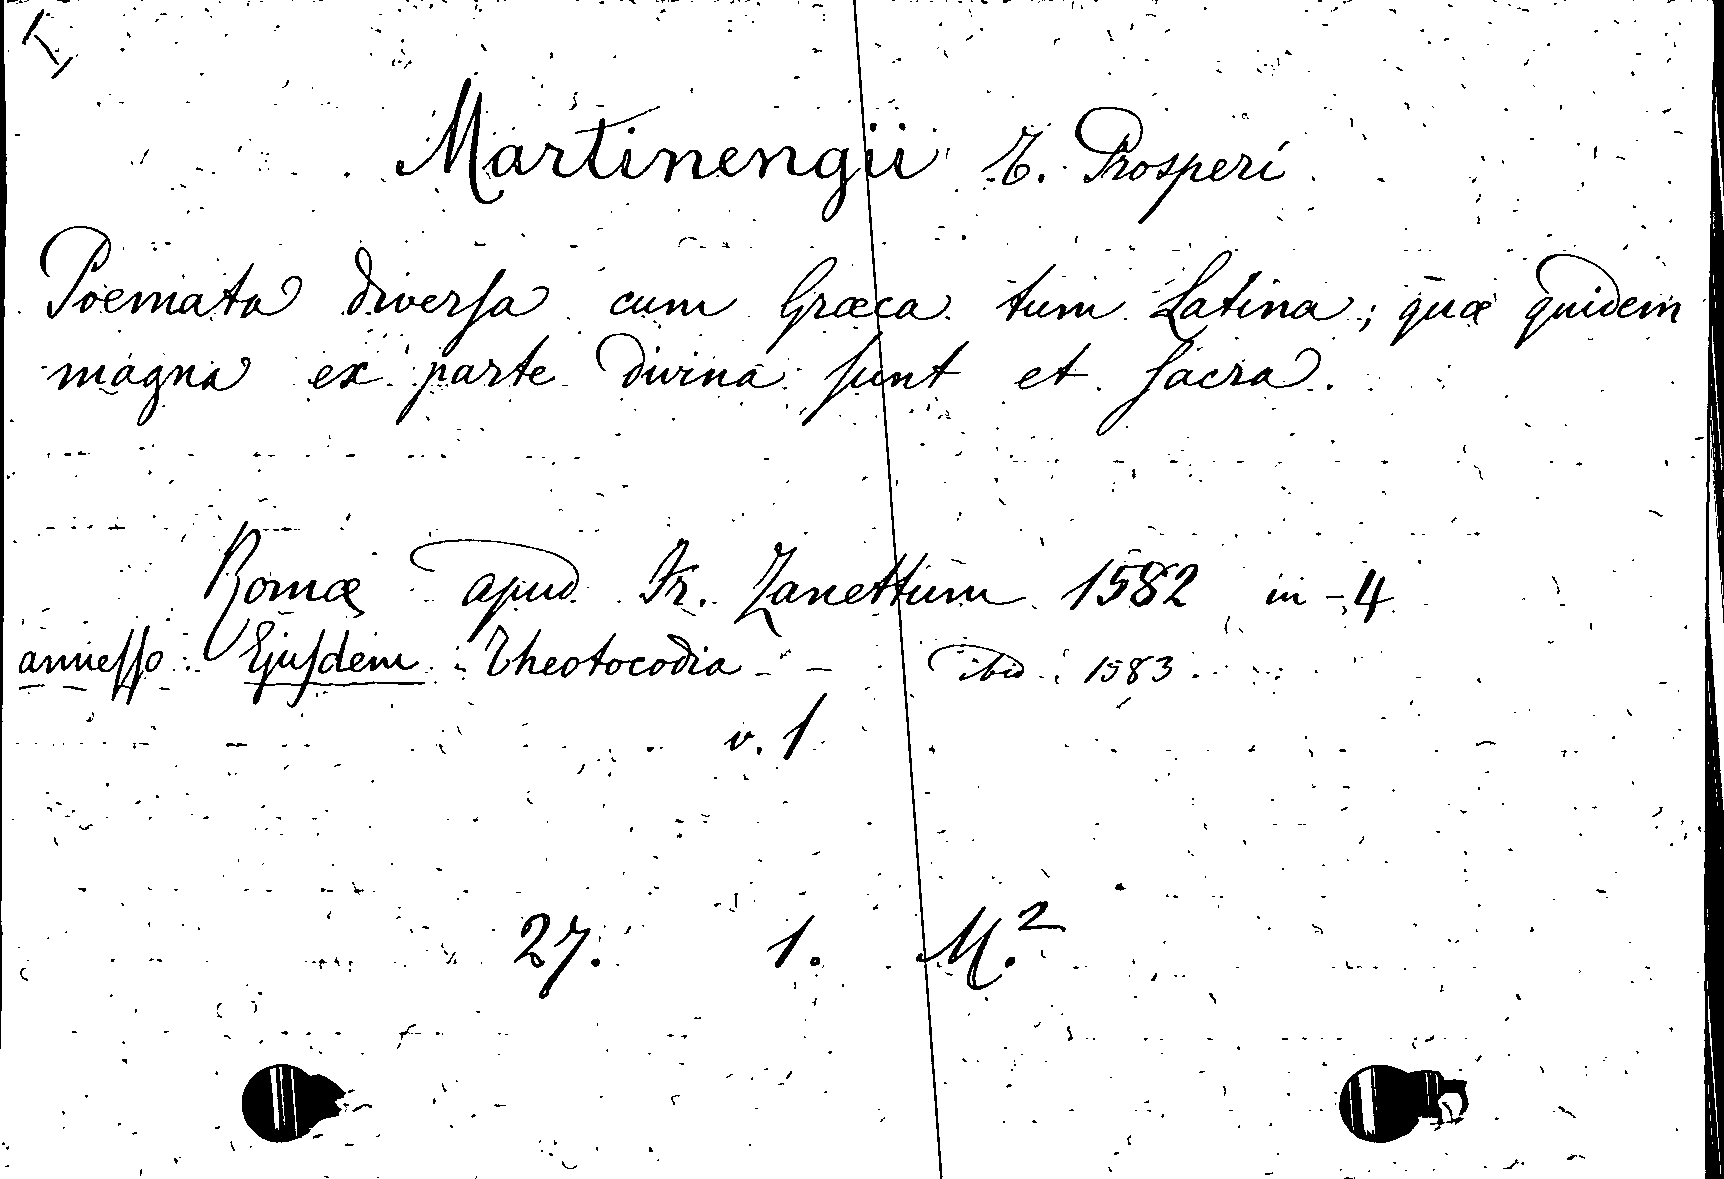 I
Martinengii T. Prosperi
Poemata diversa cum Græca tum Latina; quæ quidem
magna ex parte divina sunt et sacra.
Romæ apud Fr. Zanettum 1582 in-4
annesso Ejusdem Theotocodia - ibid 1583
v. 1
27. 1. M.²